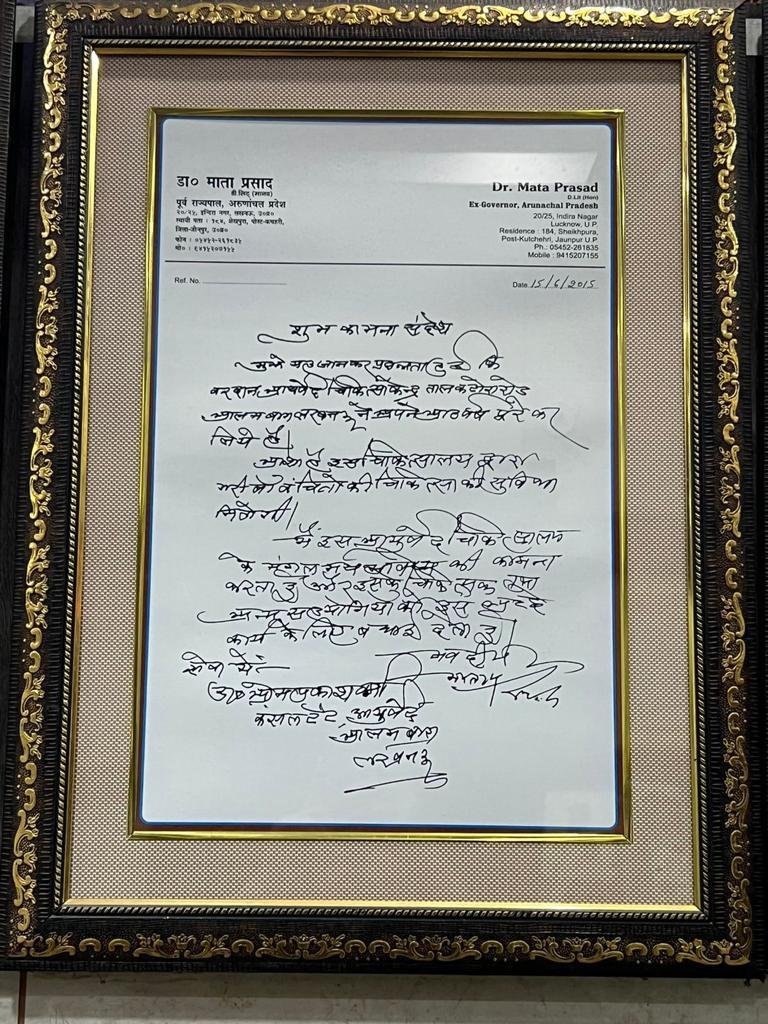 डा० माता प्रसाद
डी.लिट् (मानद)
पूर्व राज्यपाल, अरुणांचल प्रदेश
२०/२५, इन्दिरा नगर, लखनऊ, उ०प्र०
स्थायी पता : १८४, शेखपुरा, पोस्ट-कचहरी,
जिला-जौनपुर, उ०प्र०
फोन : ०५४५२-२६१८३५
मो० : ९४१५२०७१५५
Dr. Mata Prasad
D.Lit (Hon)
Ex-Governor, Arunachal Pradesh
20/25, Indira Nagar
Lucknow, U.P.
Residence : 184, Sheikhpura,
Post-Kutchehri, Jaunpur U.P.
Ph.: 05452-261835
Mobile : 9415207155
Ref. No.
Date 15/6/2015
शुभ कामना संदेश
मुझे यह जानकर प्रसन्नता हुई कि
वरदान आयुर्वेद चिकित्सा केन्द्र तालकटोरा रोड
आलमबाग लखनऊ ने अपने आठ वर्ष पूरे कर
लिये हैं।
आशा है इस चिकित्सालय द्वारा
की चिकित्सा की सुविधा
मिलेगी।
मैं इस आयुर्वेद चिकित्सालय
के मंगलमय की कामना
करता हूं और इसके चिकित्सक तथा
अन्य सहयोगियों को इस
कार्य के लिए बधाई देता हूं।
भवदीय
माता प्र
सेवा में:-
डा० ओमप्रकाश वर्मा
कंसलटेंट आयुर्वेद
आलमबाग
लखनऊ